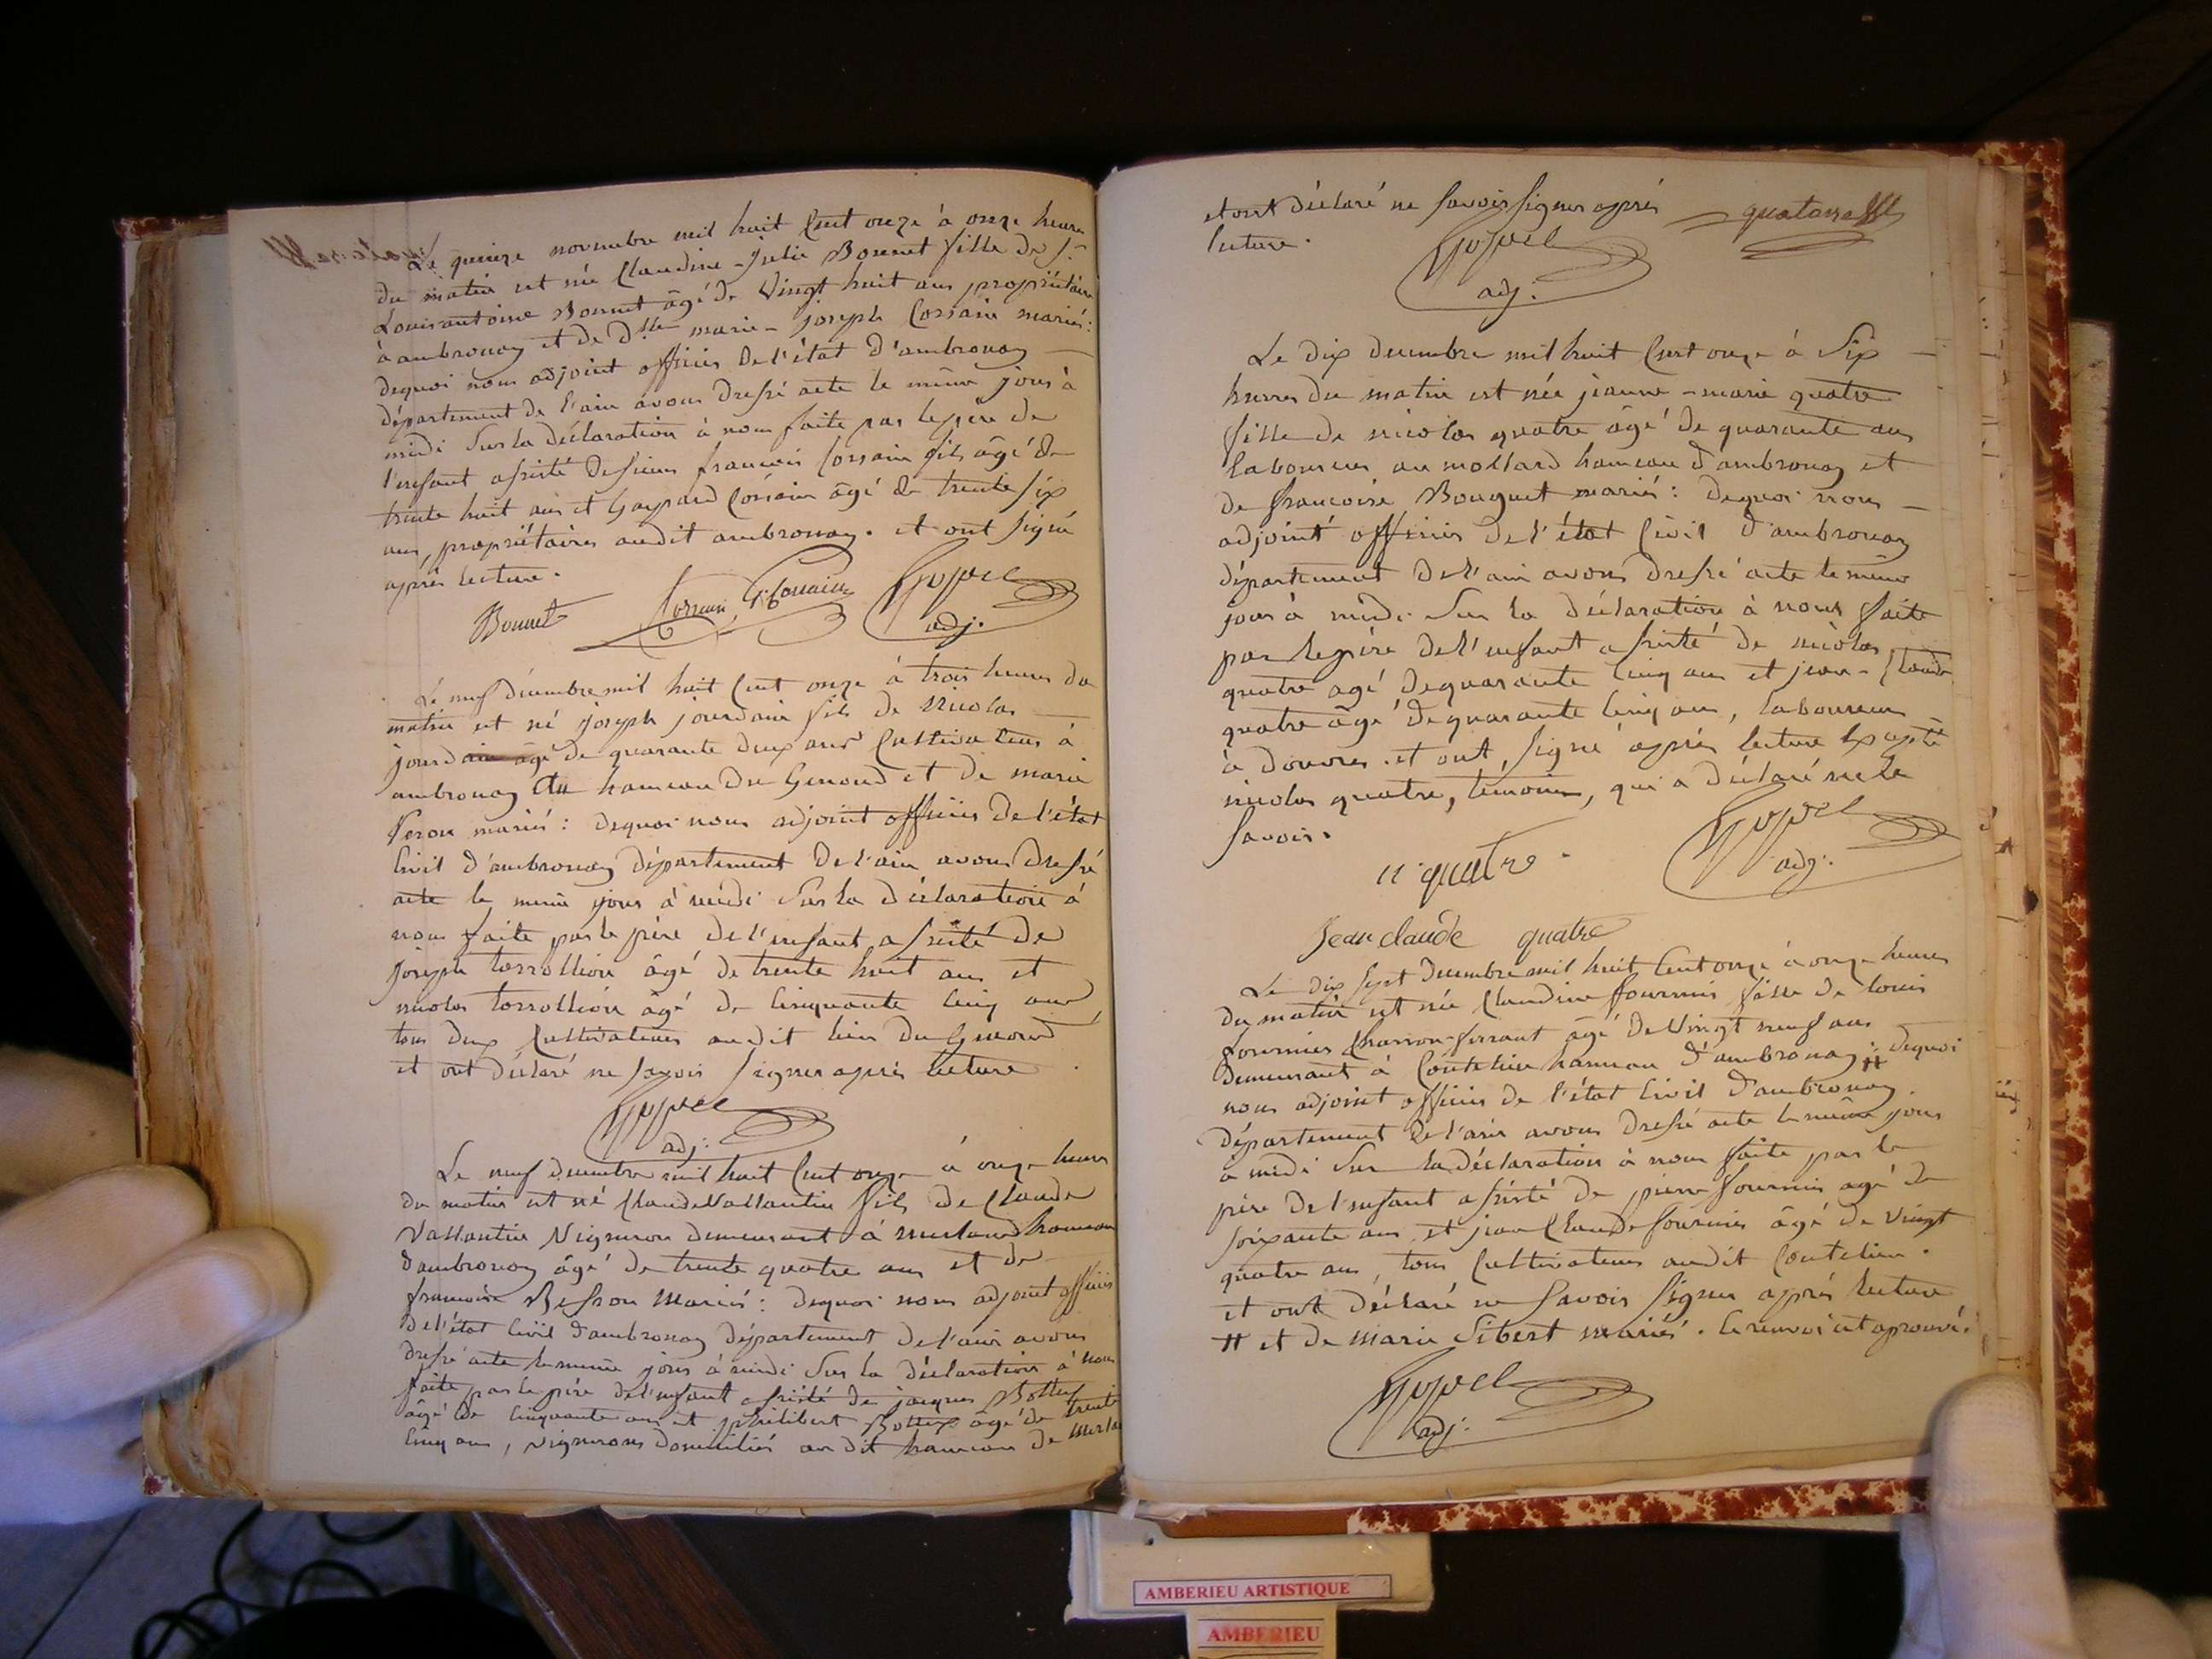 Le quinze novembre mil huit cent onze à onze heures
du matin est née Claudine-Julie Bonnet fille de Sr
Louis antoine Bonnet âgé de vingt huit ans propriétaire
à ambronay et de dlle marie-joseph Cossain mariés:
dequoi nous adjoint officier de l'état d'ambronay
département de l'ain avons dressé acte le même jour à
midi sur la déclaration à nous faite par le père de
l'enfant assisté de sieurs francois Cossain fils âgé de
trente huit ans et Gaspard Cossain âgé de trente six
ans, propriétaires audit ambronay. et ont signé
après lecture.
Bonnet Cossain Cossain
adj.
Le neuf décembre mil huit cent onze à trois heures du
matin est né joseph jourdain fils de Nicolas
jourdain âgé de quarante deux ans Cultivateur à
ambronay au hameau du Genoud et de marie
mariés: dequoi nous adjoint officier de l'état
Civil d'ambronay département de l'ain avons dressé
acte le même jour à midi sur la déclaration à
nous faite par le père de l'enfant assisté de
joseph torrollion âgé de trente huit ans et
nicolas torrollion âgé de cinquante cinq ans
tous deux Cultivateurs audit lieu du Genoud
et ont déclaré ne savoir signer après lecture
adj.
Le neuf décembre mil huit cent onze à onze heures
du matin est né Claude Vallantin fils de Claude
Vallantin Vigneron demeurant à merland hameau
d'ambronay âgé de trente quatre ans et de
francoise Besson Mariés: dequoi nous adjoint officier
de l'état civil d'ambronay département de l'ain avons
dressé acte le même jour à midi sur la déclaration à nous
faite par le père de l'enfant assisté de jacques Bottex
âgé de cinquante ans et philibert Bottex âgé de trente
cinq ans, vignerons domiciliés au dit hameau de
et ont déclaré ne savoir signer après
lecture.
adj.
Le dix décembre mil huit cent onze à six
heures du matin est née jeanne-marie quatre
fille de nicolas quatre âgé de quarante ans
laboureur au mollard hameau d'ambronay et
de francoise Bouquet mariés: dequoi nous
adjoint officier de l'état Civil d'ambronay
département de l'ain avons dressé acte le même
jour à midi sur la déclaration à nous faite
par le père de l'enfant assisté de nicolas
quatre agé de quarante cinq ans et jean-Claude
quatre âgé de quarante cinq ans, laboureurs
à douvres. et ont signé après lecture Excepté
nicolas quatre, témoin, qui a déclaré ne le
savoir.
n quatre
adj.
Jean claude quatre
Le dix sept décembre mil huit cent onze à onze heures
du matin est née Claudine fournier fille de louis
fournier Charron-ferrant âgé de vingt neuf ans
demeurant à Coutelieu hameau d'ambronay: # dequoi
nous adjoint officier de l'état civil d'ambronay
département de l'ain avons dressé acte le même jour
à midi sur la déclaration à nous faite par le
père de l'enfant assisté de pierre fournier agé de
soixante ans et jean Claude fournier âgé de vingt
quatre ans, tous Cultivateurs audit Coutelieu.
et ont déclaré ne savoir signer après lecture
# et de marie Sibert mariés. le renvoi est aprouvé.
adj.
AMBERIEU ARTISTIQUE
AMBERIEU